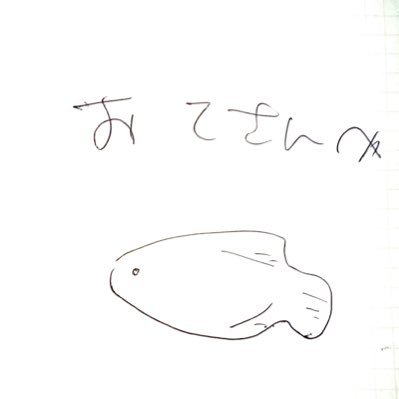 お てさんへ